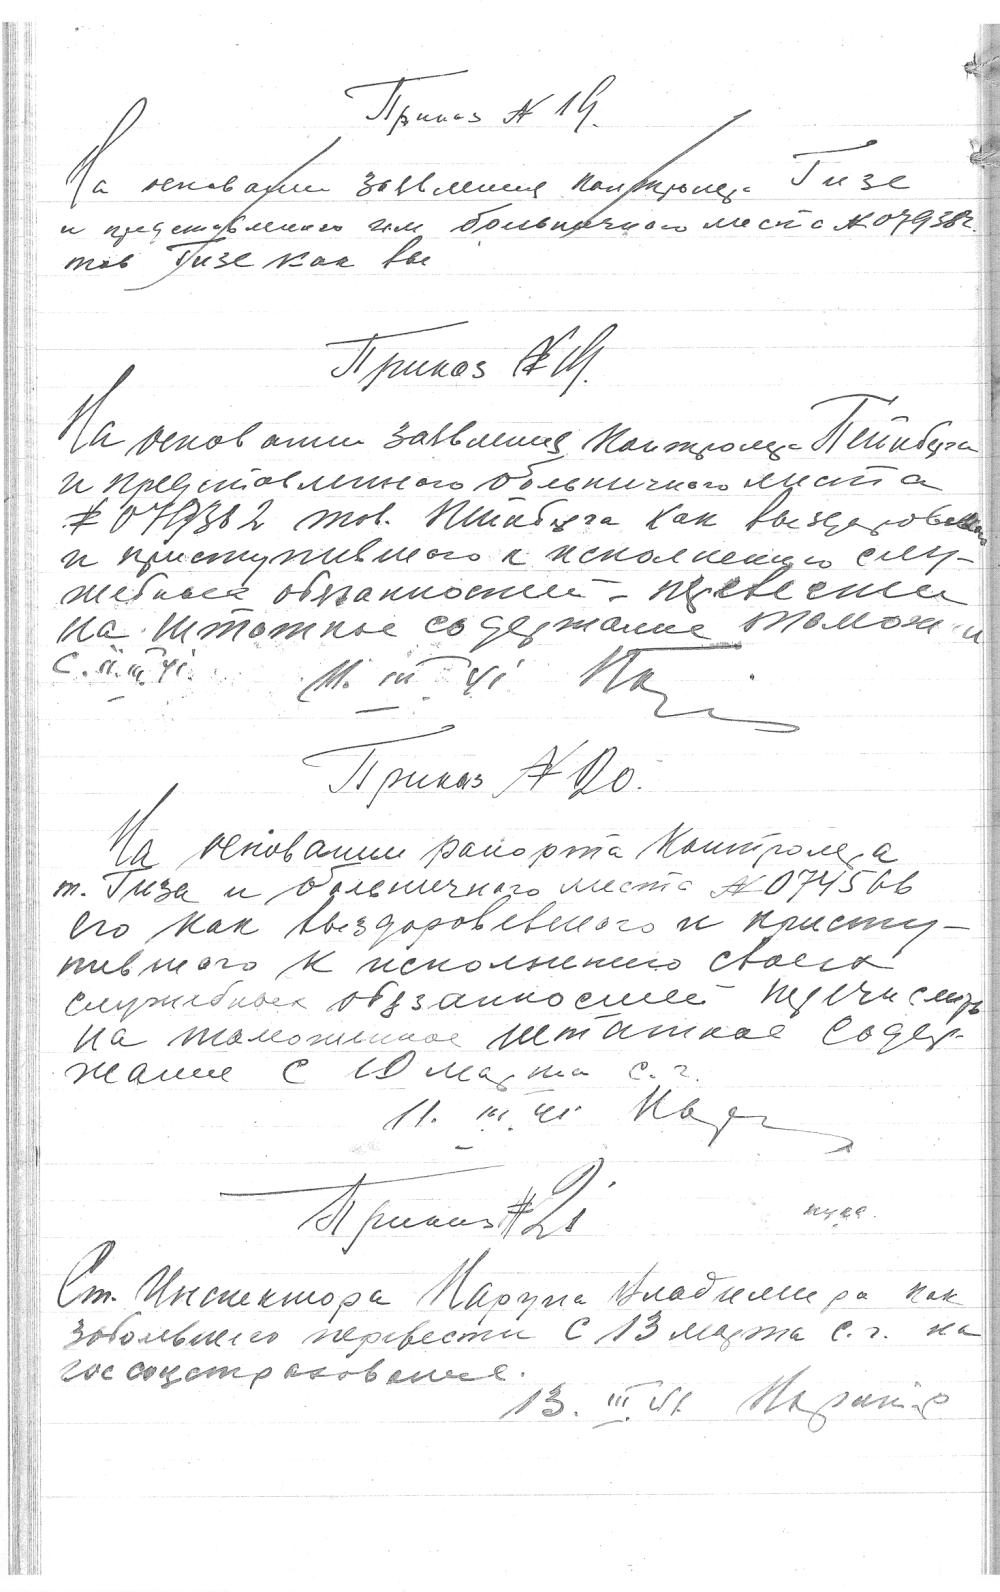 Приказ № 19.
На основании заявления контролера Гизе
и представленного им больничного листа № 079382.
тов Гизе как вы
Приказ № 19.
На основании заявления контролера Пейнбурга
и представленного больничного листа
№ 079382 тов. Пейнбурга как выздоровевшего
и приступившего к исполнению слу-
жебных обязанностей - перевести
на штатное содержание таможни
с 11.III.41.
11. III 41
Приказ № 20.
На основании рапорта контролера
т. Гиза и больничного листа № 074566
его как выздоровевшего и присту-
пившего к исполнению своих
служебных обязанностей перечислить
на таможенное штатное содер-
жание с 10 марта с. г.
11. III. 41
Приказ № 21
Ст. Инспектора Марупа Владимира как
заболевшего перевести с 13 марта с. г. на
гос соцстрахование.
13. III. 41.